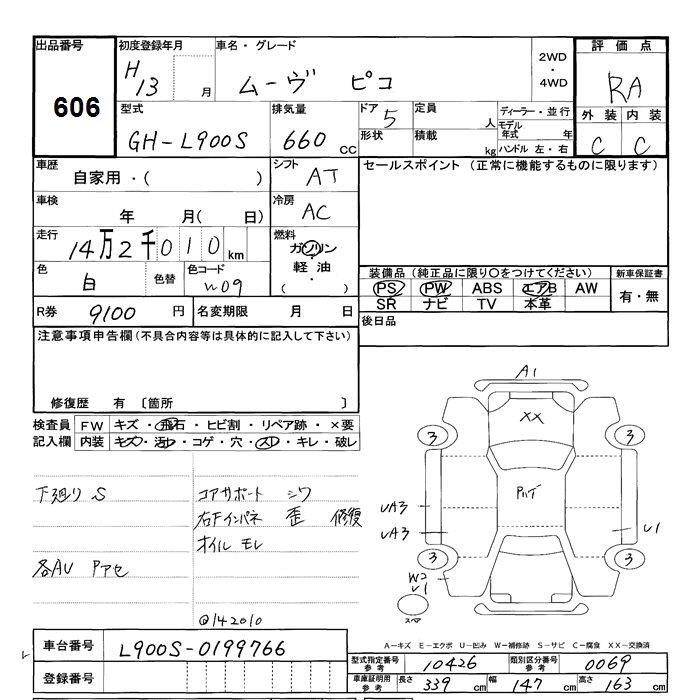 出品番号 初度登録年月 車名・グレード 2WD・4WD 評価点
606 H13 月 ムーヴ ピコ RA
型式 排気量 ドア 5 定員 人 ディーラー・並行 外装 内装
GH-L900S 660 CC 形状 積載 kg モデル年式 年 ハンドル 左・右 C C
車歴 シフト セールスポイント (正常に機能するものに限ります)
自家用・( ) AT
車検 冷房
年 月( 日) AC
走行 燃料
14万2千010km ガソリン・軽油・( )
色 色替 色コード 装備品(純正品に限り〇をつけてください) 新車保証書
白 W09 PS PW ABS エアB AW 有・無
SR ナビ TV 本革
R券 9100 円 名変期限 月 日 後日品
注意事項申告欄(不具合内容等は具体的に記入して下さい)
修復歴 有 〔箇所 〕
検査員 FW キズ・飛石・ヒビ割・リペア跡・×要
記入欄 内装 キズ・汚レ・コゲ・穴・スレ・キレ・破レ
下廻り S コアサポート シワ
右Fインパネ 歪 修復
オイル モレ
各AU Pアセ
@142010
A1
XX
3 3
UA3
UA3 U1
3 3
W2
U1
A-キズ E-エクボ U-凹み W-補修跡 S-サビ C-腐食 XX-交換済
車台番号 L900S-0199766 型式指定番号 参考 10426 類別区分番号 参考 0069
登録番号 車庫証明用 参考 長さ 339 cm 幅 147 cm 高さ 163 cm